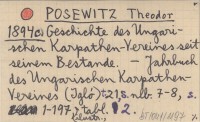 POSEWITZ Theodor
1894 Geschichte des Ungari-
schen Karpathen-Vereines seit
seinem Bestande. — Jahrbuch
des Ungarischen Karpathen-
Vereines (Igló) 21, s. nlb. 7-8, s.
1-197, tabl. 2.